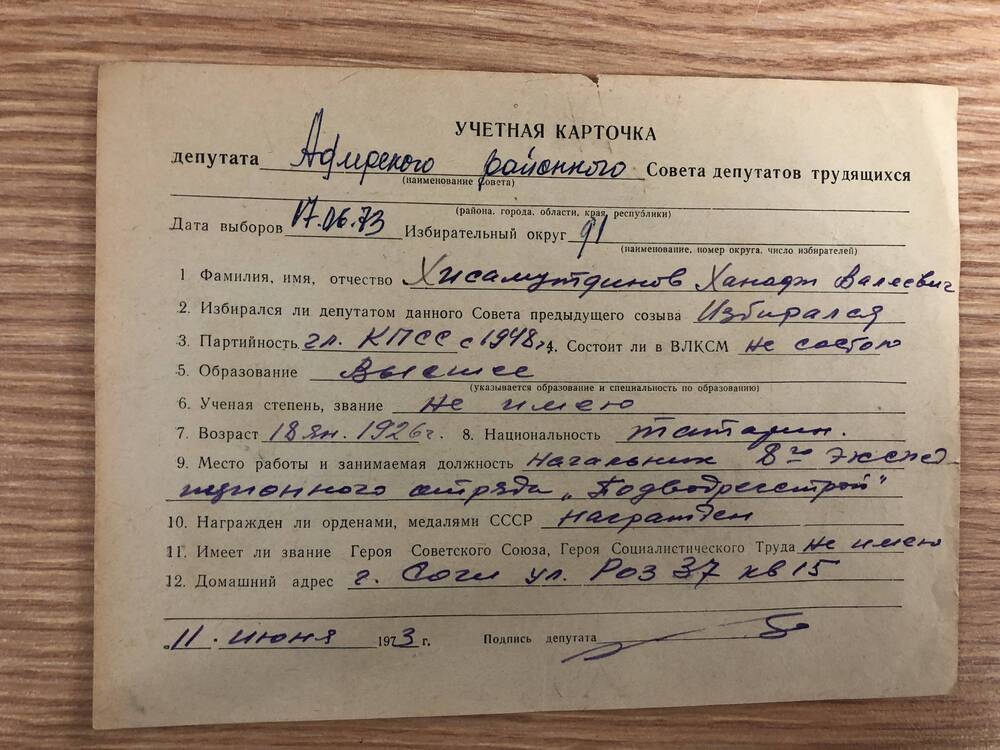 УЧЕТНАЯ КАРТОЧКА
депутата Адлерского районного Совета депутатов трудящихся
(наименование Совета)
(района, города, области, края, республики)
Дата выборов 17.06.73 Избирательный округ 91
(наименование, номер округа, число избирателей)
1 Фамилия, имя, отчество Хисамутдинов Ханафи Валеевич
2. Избирался ли депутатом данного Совета предыдущего созыва Избирался
3. Партийность чл. КПСС с 1948г. 4. Состоит ли в ВЛКСМ не состою
5. Образование Высшее
(указывается образование и специальность по образованию)
6. Ученая степень, звание не имею
7. Возраст 18 ян. 1926г. 8. Национальность татарин.
9. Место работы и занимаемая должность Начальник 8го экспед
иционного отряда „Подводречстрой"
10. Награжден ли орденами, медалями СССР награжден
11. Имеет ли звание Героя Советского Союза, Героя Социалистического Труда не имею
12. Домашний адрес г. Сочи ул. Роз 37 кв 15
„11. июня 1973 г. Подпись депутата